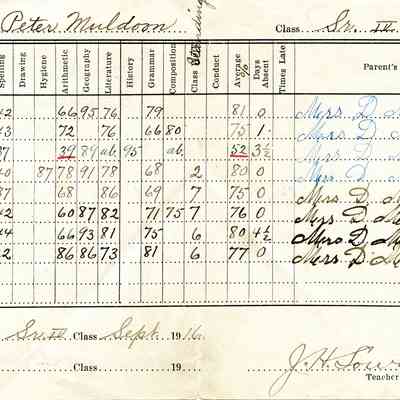 Peter Muldoon Class Sr. IV.
Spelling Drawing Hygiene Arithmetic Geography Literature History Grammar Composition Class Standing Conduct Average % Days Absent Times Late Parent's
42 66 95 76 79 81 0 Mrs. D.
43 72 76 66 80 75 1 Mrs. D.
37 39 89 ab. 95 ab. 52 3½ Mrs. D.
40 87 78 91 78 68 2 80 0 Mrs. D.
37 68 86 69 7 75 0 Mrs. D. M
42 60 87 82 71 75 7 76 0 Mrs. D. M
44 66 93 81 75 6 80 4½ Mrs. D. M
2 86 86 73 81 6 77 0 Mrs. D. M
Sr. IV Class Sept. 1916
Class 19 J. H.
Teacher